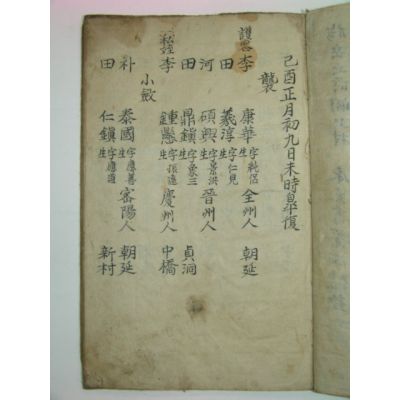 己酉正月初九日未時皐復
襲
護喪李 康華字純侶生 全州人 朝延
田 羲淳字仁見生
河 碩興字景洪生 晉州人
田 鼎鎭字象三生 貞洞
李 鍾 字振遠生 慶州人 中橋
小斂
朴 泰國字應善生 密陽人 朝延
田 仁鎭字應道生 新村